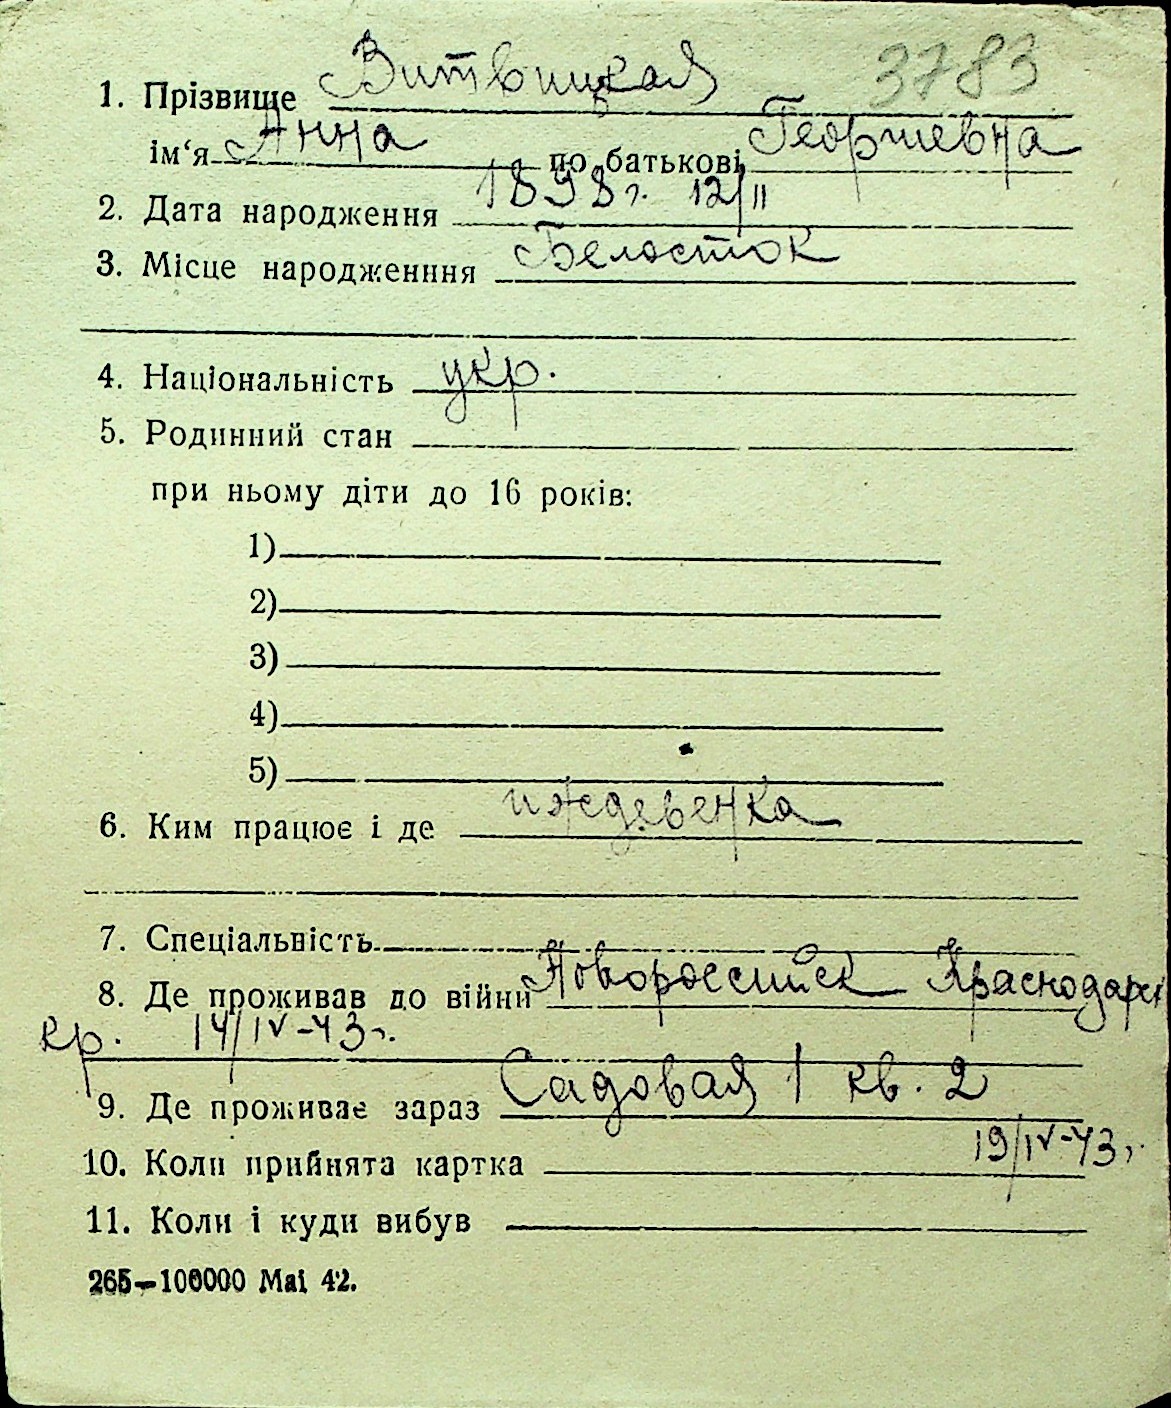 3783
1. Прізвище Витвицкая
ім‘я Анна по батькові Георгиевна
2. Дата народження 1898г. 12/II
3. Місце народженння Белосток
4. Національність укр.
5. Родинний стан
при ньому діти до 16 років:
1)
2)
3)
4)
5)
6. Ким працює і де иждевенка
7. Спеціальність
8. Де проживав до війни Новороссийск Краснодарск
кр. 14/IV-43г.
9. Де проживає зараз Садовая 1 кв. 2
10. Коли прийнята картка 19/IV-43г.
11. Коли і куди вибув
265—100000 Маі 42.